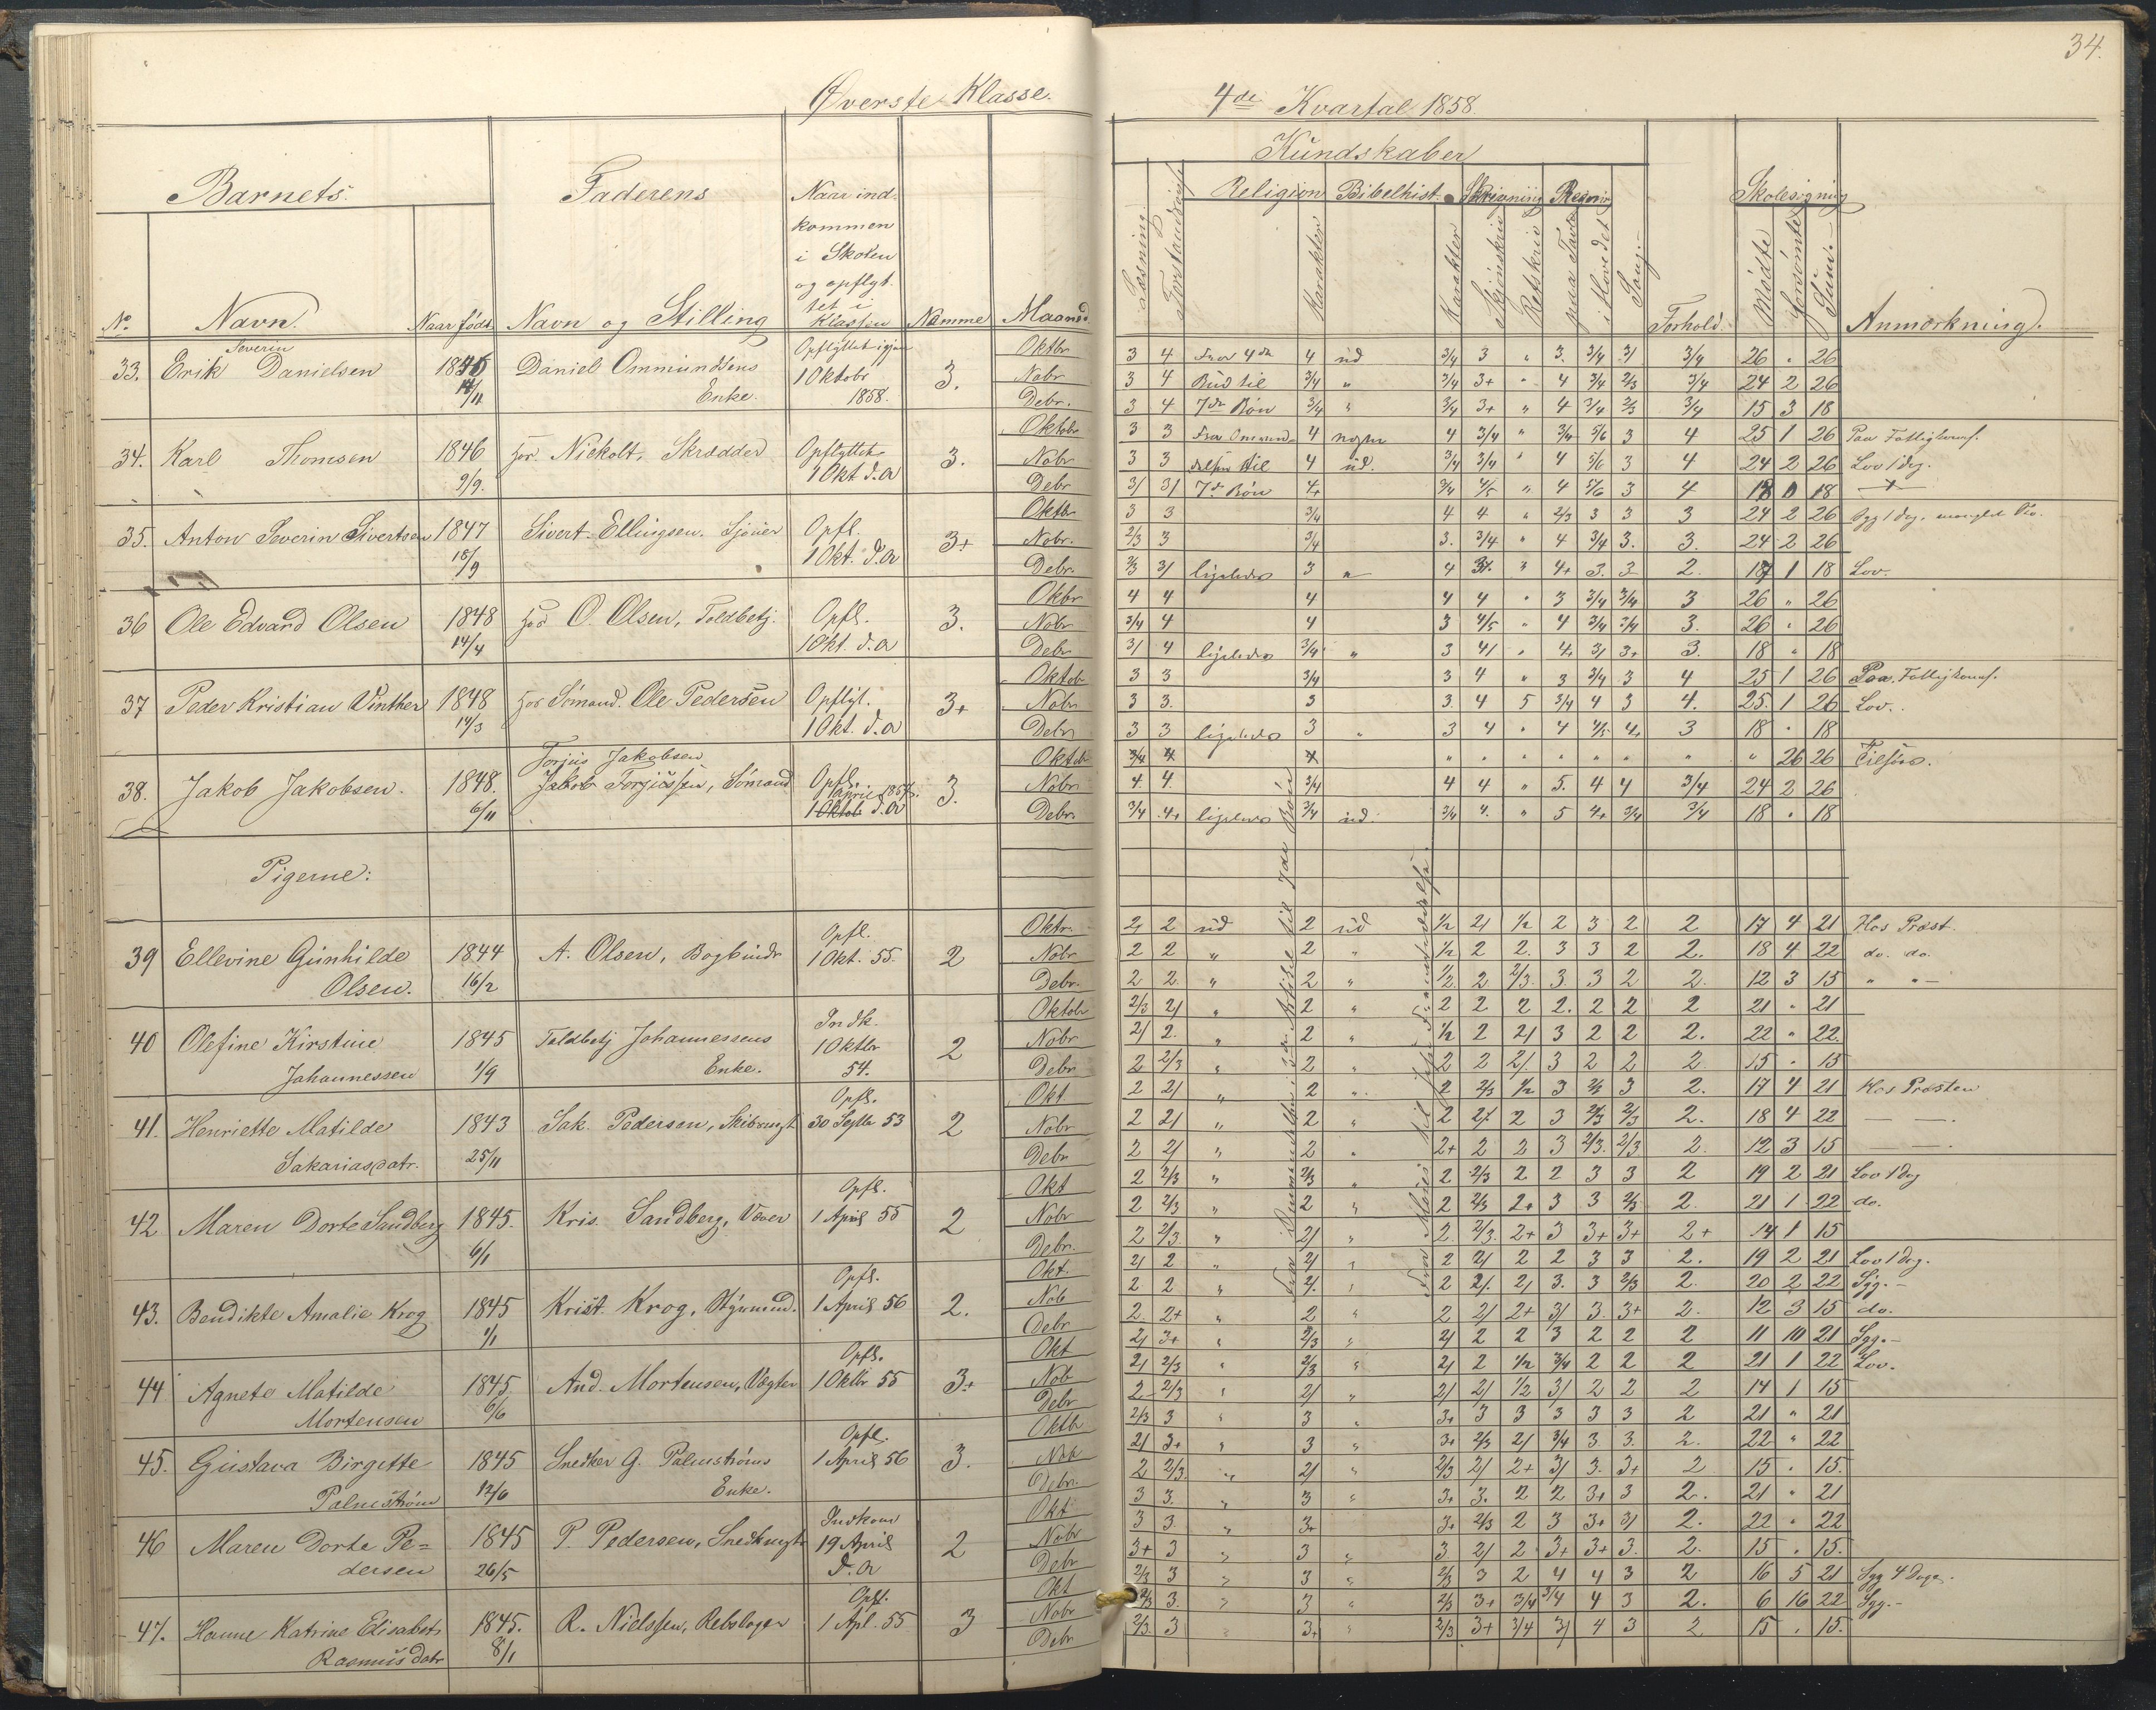 34.
Øverste Klasse.
4de Kvartal 1858.
Barnets
Faderens
Naar ind-
kommen
i Skolen
og opflyt-
tet i
Klassen
Kundskaber
Religion Bibelhist. Skrivning Regning
Skolesøgning
No Navn. Naar født Navn og Stilling Nemme Maaned
Læsning. Karakter Karakter Retskriv i Hovedet Sang.- Forhold Mødte Forsømte Sum.- Anmærkning.
Severin
33. Erik Danielsen 1846 Daniel Ommundsens Opflyttet igjen 3. Oktbr 3 4 Fra 4de 4 ud 3/4 3 " 3. 3/4 3/ 3/4 26 " 26
14/11 Enke. 1 Oktobr Nobr 3 4 Bud til 3/4 " 3/4 3+ " 4 3/4 2/3 3/4 24 2 26
1858. Debr. 3 4 7de Bøn 3/4 " 3/4 3+ " 4 3/4 2/3 3/4 15 3 18
34. Karl Thomsen 1846 hos Nickolt, Skrædder Opflyttet 3. Oktobr 3 3 4 4 3/4 " 3/4 5/6 3 4 25 1 26 Paa Fattigkoms.
9/9. 1 Okt d.a Nobr 3 3 til 4 ud. 3/4 3/4 " 4 5/6 3 4 24 2 26 Lov 1 dg.
Debr 3/ 3/ 7de Bøn 4+ 3/4 4/5 " 4 5/6 3 4 18 0 18
35. Anton Severin Sivertsen 1847 Sivert Ellingsen. Opfl. 3+ Oktbr 3 3 3/4 4 4 " 2/3 3 3 3 24 2 26
18/9 1 Okt. d.a Nobr. 2/3 3 3/4 3. 3/4 " 4 3/4 3. 3. 24 2 26
Debr. 2/3 3/ ligeledes 3 " 4 3/. " 4+ 3. 3 2. 17 1 18 Lov.
36 Ole Edvard Olsen 1848 hos O. Olsen, Toldbetj. Opfl. 3. Okbr 4 4 4 4 4 " 3 3/4 3/4 3 26 " 26
14/4 1 Okt. d.a Nobr 3/4 4 4 3 4/5 " 4 3/4 3/4 3. 26 " 26
Debr 3/ 4 ligeledes 3/4 " 3 4/ " 4. 3/ 3+ 3. 18 " 18
37 Peder Kristian Winther 1848 hos Sømand. Ole Pedersen Opflyt. 3+ Oktob 3 3 3/4 3 4 " 3 3/4 3 4 25 1 26 Paa Fattigkoms.
14/3 1 Okt. d.a Nobr 3 3. 3 3. 4 5 3/4 4 3 4. 25. 1 26 Lov.
Debr 3 3 ligeledes 3 " 3 4 " 4 4/5 4. 3 18 " 18
Torjus Jakobsen
38. Jakob Jakobsen. 1848. Jakob Torjussen, Sømand Opfl. 3. Oktob " " " " " " " " 26 26 Tilsøs.
6/11 1 April 1857. Nobr 4. 4. 3/4 4 4 " 5. 4 4 3/4 24 2 26
1 Oktob d.a Debr. 3/4 4+ ligeledes 3/4 ud. 3/4 4. " 5 4+ 3/4 3/4 18 " 18
Pigerne:
39 Ellevine Gunhilde 1844 A. Olsen, Bogbindr Opfl. 2 Oktr. 2, 2 ud 2 ud 1/2 2/ 1/2 2 3 2 2 17 4 21 Hos Præst.
Olsen. 16/2 1 Okt. 55. Nobr 2 2 " 2 " 1/2 2 2. 3 3 2 2. 18 4 22 do. do.
Debr. 2 2. " 2 " 1/2. 2 2/3. 3. 3 2 2. 12 3 15 " "
40 Olefine Kirstine 1845 Toldbetj Johannessens Indk. 2 Oktobr 2/3 2/ " 2 " 2 2 2 2. 2 2 2 21 " 21
Johannessen 1/9 Enke. 1 Oktbr Nobr 2/ 2. " 2 " 1/2 2 2/ 3 2 2 2. 22 " 22.
54. Debr 2 2/3 " 2 " 2 2 2/. 3 2 2 2 15 " 15
41. Henriette Matilde 1843 Sak. Pedersen, Opfl. 2 Okt 2 2/ " 2 " 2 2/3 1/2 3 2/3 3 2. 17 4 21 Hos Præsten
Sakariasdatr. 25/11 30 Septbr 53 Nobr 2 2/ " 2 " 2 2/. 2 3 2/3 2/3 2. 18 4 22
Debr 2 2/ " 2 " 2+ 2 2 3 2/3. 2/3 2. 12 3 15
42 Maren Dorte Sandberg 1845. Kris. Sandberg, Væver Opfl. 2 Okt 2 2/3 " 2/3 " 2 2/3 2 2 3 3 2 19 2 21 Lov 1 dg
6/1 1 April 55 Nobr 2 2/3 " 2 " 2 2/3 2+ 3 3 2/3 2. 21 1 22 do.
Debr. 2 2/3 " 2/ " 2. 2/3. 2+ 3 3+ 3+ 2+ 14 1 15
43. Bendikte Amalie Krog 1845 Krist. Krog, Styrmand. Opfl. 2. Okt. 2/ 2 " 2/ " 2 2/ 2 2 3 3 2. 19 2 21 Lov 1 dg.
1/1 1 April 56 Nob 2 2 " 2/. " 2 2/. 2/ 3. 3 2/3 2. 20 2 22 Syg.-
Debr 2 2+ " 2 " 2 2/ 2+ 3/ 3. 3+ 2. 12 3 15 do.
44 Agnete Matilde 1845. And. Mortensen, Vægter Opfl. 3+ Okt 2/ 3+ " 2/3 " 2/ 2 2 3 2 2 2 11 10 21 Syg.-
Mortensen 6/6 1 Oktbr 55 Nob 2/ 2/3 " 2/3 " 2/ 2 1/2 3/4 2 2 2 21 1 22 Lov.
Debr 2 2/3 " 2/ " 2/ 2/ 1/2 3/ 2 2 2 14 1 15
45. Gustava Birgitte 1845 Snedker G. Palmstrøms Opfl. 3. Oktbr 2/3 3 " 3 " 3+ 3 3 3 3 3 2 21 " 21
Palmstrøm 12/6 Enke. 1 April 56 Nob 2/ 3+ " 3 " 3+ 2/3 2/ 3/4 3. 3. 2. 22 " 22
Debr. 2 2/3 " 2/ " 2/3 2/ 2+ 3/ 3. 3+ 2 15 " 15.
46 Maren Dorte Pe= 1845 P. Pedersen, Indkom 2 Okt 3 3. " 3 " 3+ 3. 2 2 3+ 3 2. 21 " 21
dersen 26/5 19 April Nobr 3 3 " 3+ 3+ 2/3 2 3 3+ 3/ 2. 22 " 22
d. a Debr 3+ 3 " 3 " 3 2/ 2 3+ 3+ 3. 2. 15 " 15.
47. Hanne Katrine Elisabet 1845. R. Nielssen, Rebslager Opfl. 3 Okt 2/3 3 " 3 " 2/3 3 2 4 4 3 2 16 5 21 Syg 4 Dage.
Rasmusdatr 8/1 1 Apl. 55 Nobr 2/3 3. " 3 " 2/3 3+ 3/4 3/4 4 3 2. 6 16 22 Syg.-
Debr 2/3. 3 " 3+ " 2/3 3+ 3/4 3/ 4 3 2 15 " 15.